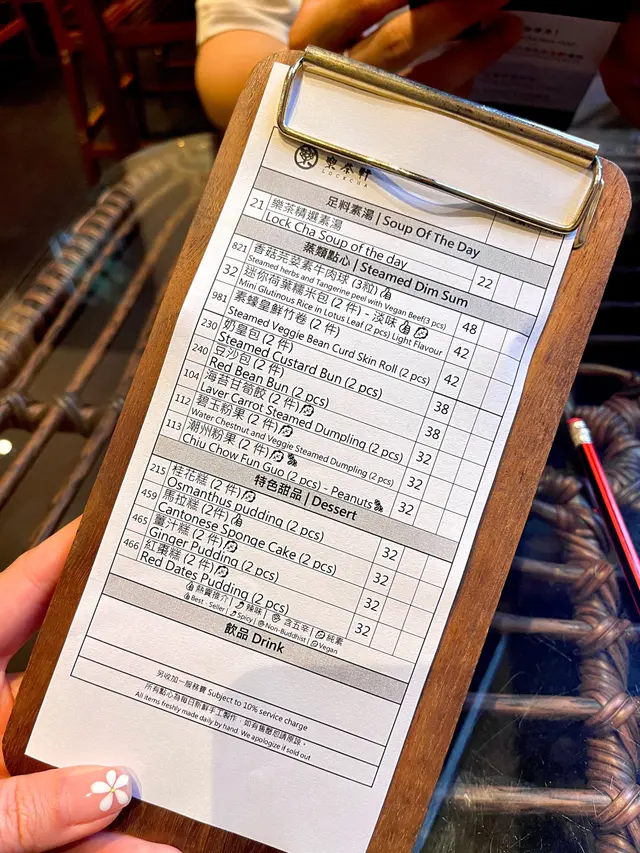 樂茶軒
LOCKCHA
足料素湯 | Soup Of The Day
21 樂茶精選素湯 22
Lock Cha Soup of the day
蒸類點心 | Steamed Dim Sum
821 香菇芫荽素牛肉球 (3粒) 48
Steamed herbs and Tangerine peel with Vegan Beef(3 pcs)
32 迷你荷葉糯米包 (2 件) - 淡味 42
Mini Glutinous Rice in Lotus Leaf (2 pcs) Light Flavour
981 素蠔皇鮮竹卷 (2 件) 42
Steamed Veggie Bean Curd Skin Roll (2 pcs)
230 奶皇包 (2 件) 38
Steamed Custard Bun (2 pcs)
240 豆沙包 (2 件) 38
Red Bean Bun (2 pcs)
104 海苔甘筍餃 (2 件) 32
Laver Carrot Steamed Dumpling (2 pcs)
112 碧玉粉果 (2 件) 32
Water Chestnut and Veggie Steamed Dumpling (2 pcs)
113 潮州粉果 (2 件) 32
Chiu Chow Fun Guo (2 pcs) - Peanuts
特色甜品 | Dessert
215 桂花糕 (2 件) 32
Osmanthus Pudding (2 pcs)
459 馬拉糕 (2 件) 32
Cantonese Sponge Cake (2 pcs)
465 薑汁糕 (2 件) 32
Ginger Pudding (2 pcs)
466 紅棗糕 (2 件) 32
Red Dates Pudding (2 pcs)
熱賣推介 | 辣味 | 含五辛 | 純素
Best - Seller | Spicy | Non-Buddhist | Vegan
飲品 Drink
另收加一服務費 Subject to 10% service charge
所有點心為每日新鮮手工製作，如有售罄恕請原諒。
All items freshly made daily by hand. We apologize if sold out